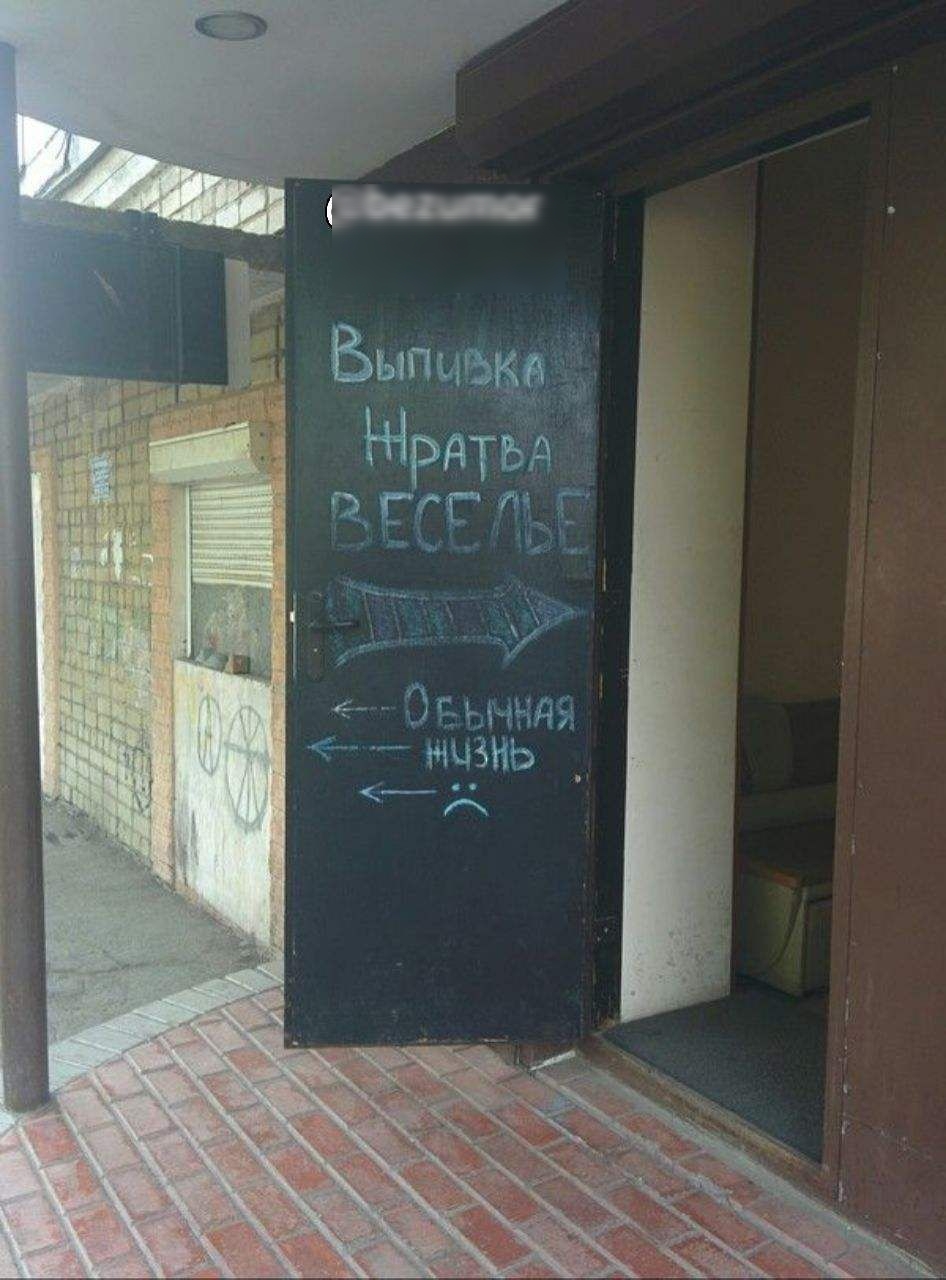 Выпивка
Жратва
ВЕСЕЛЬЕ
Обычная
жизнь